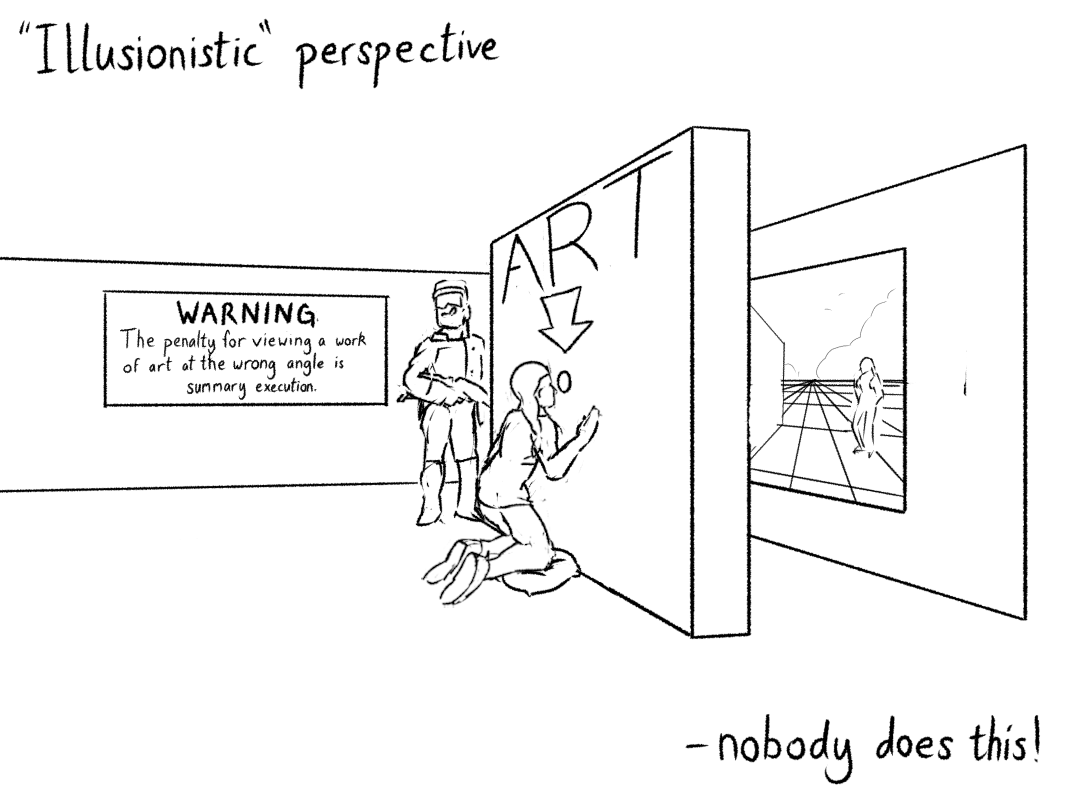 "Illusionistic" perspective
ART
WARNING
The penalty for viewing a work
of art at the wrong angle is
summary execution.
-nobody does this!